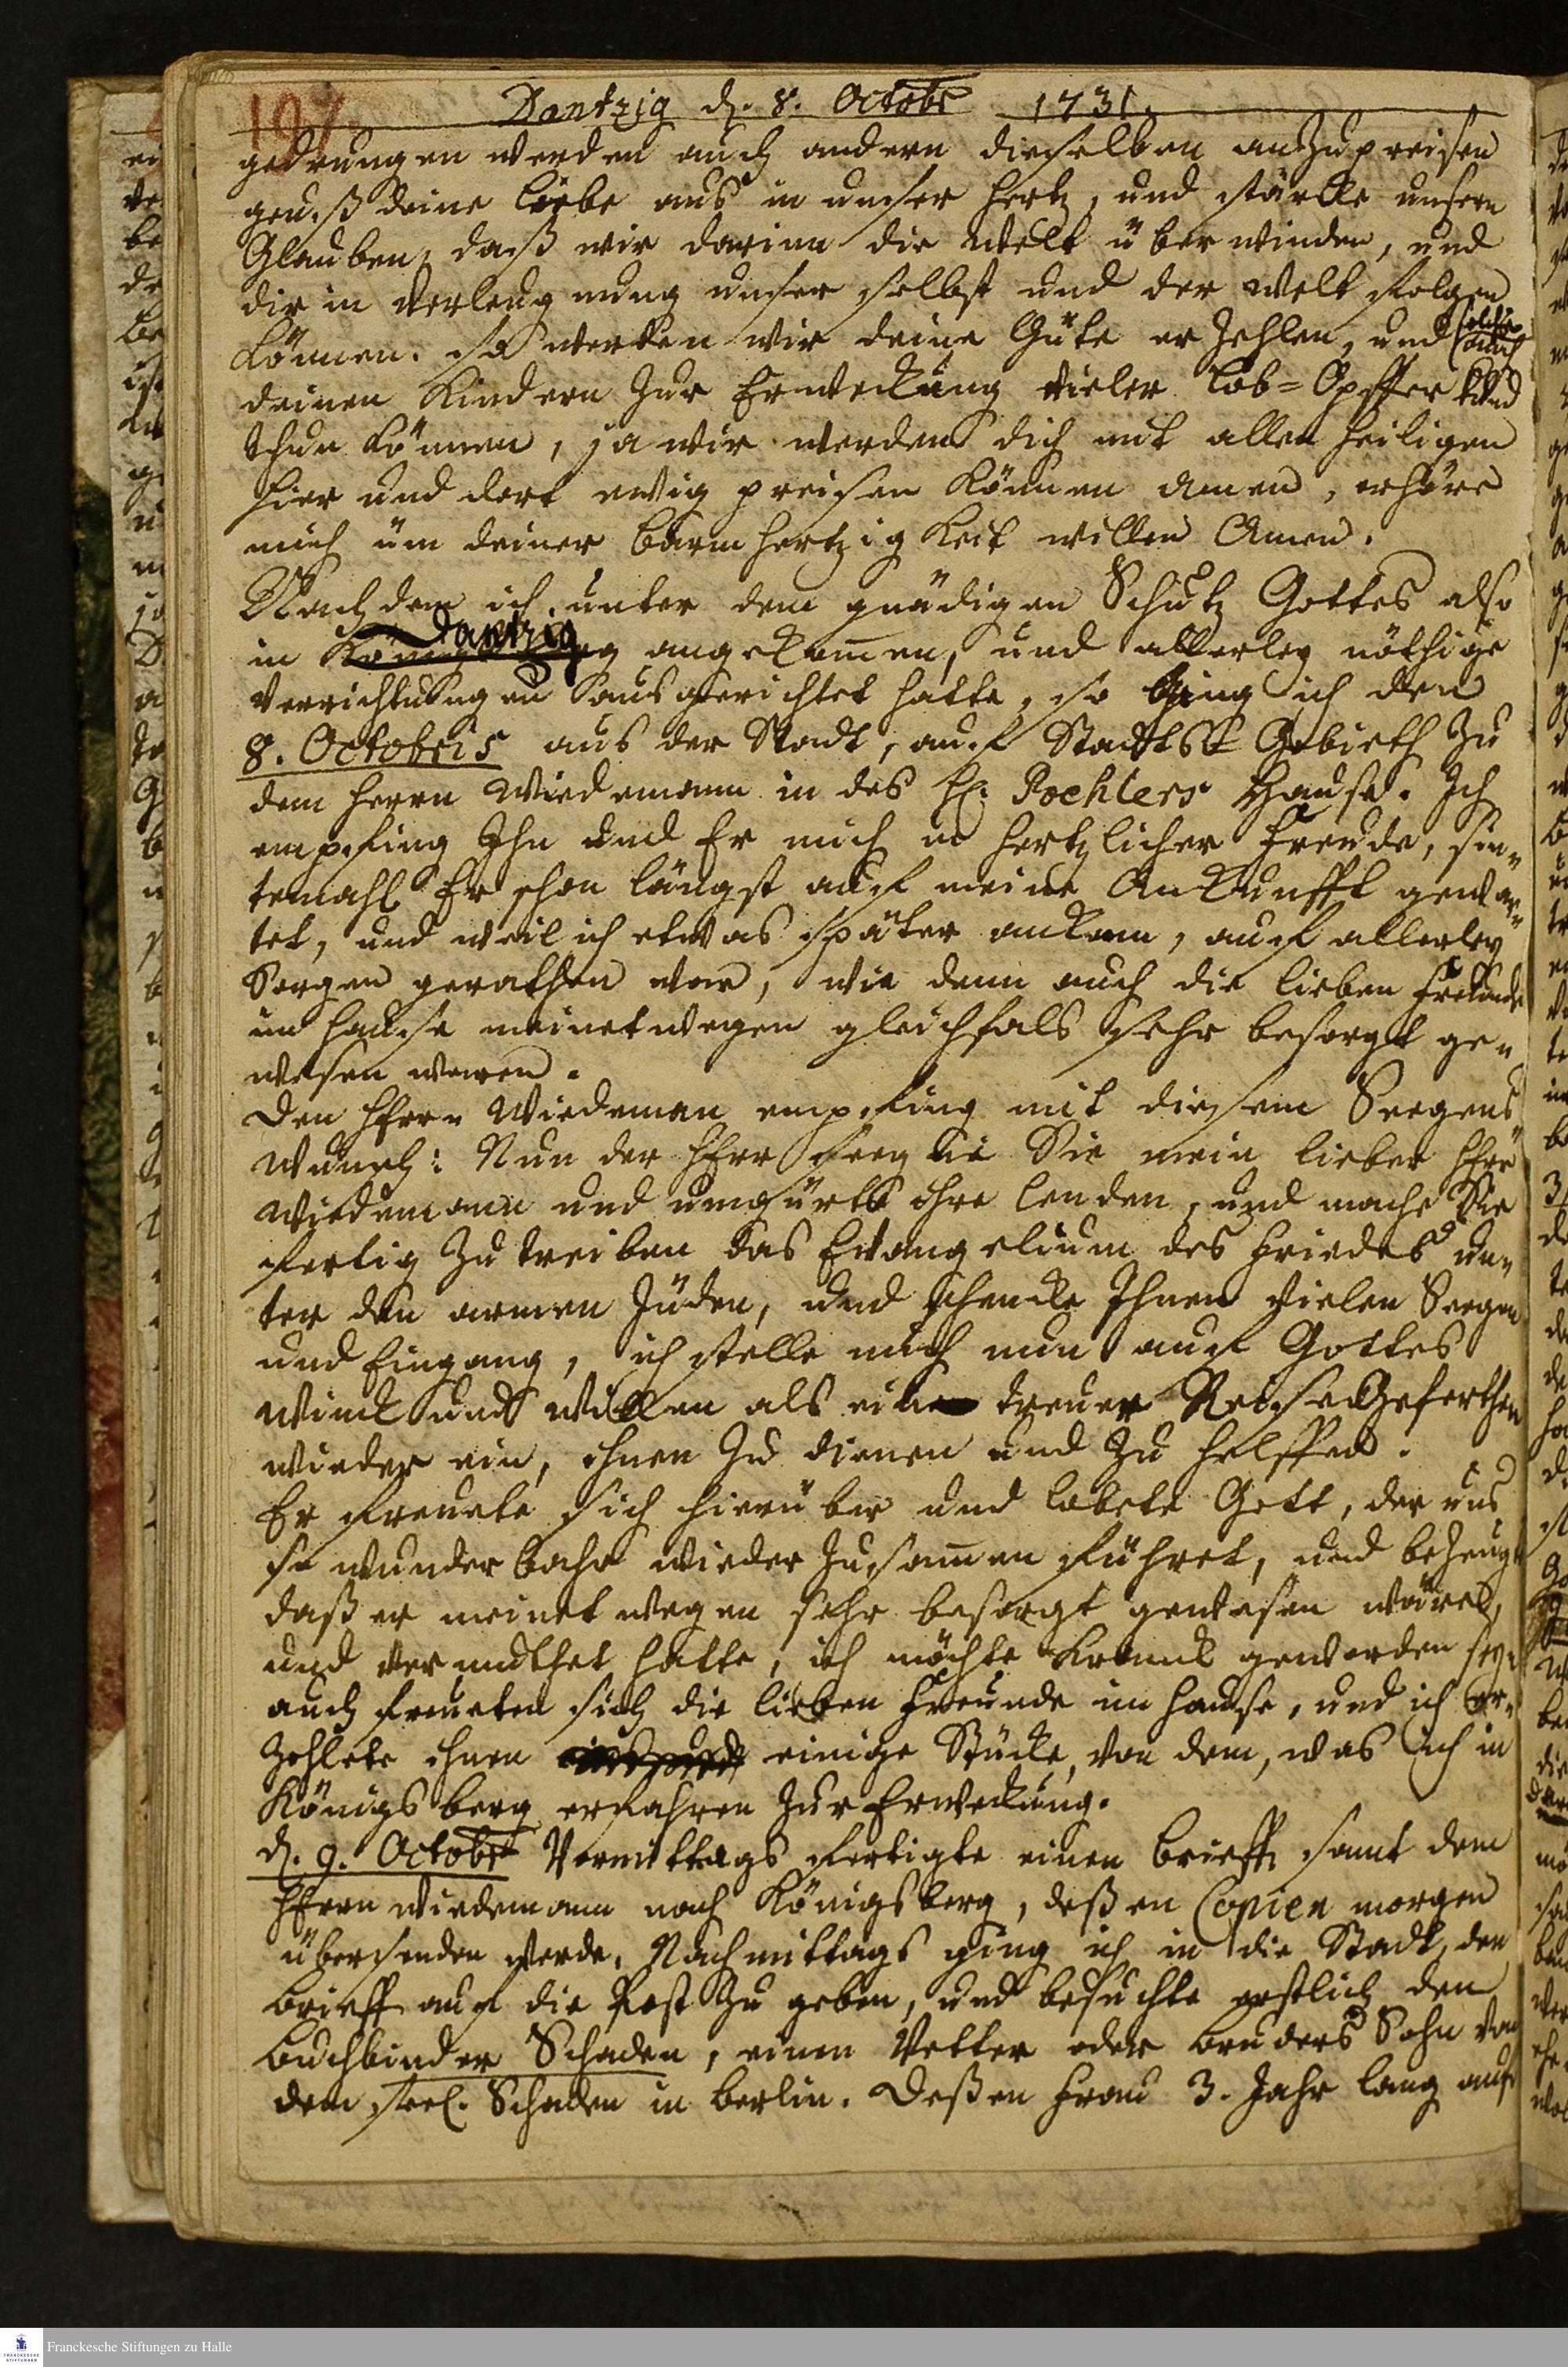 197.
Dantzig d. 8. Octobr 1731.
gedrungen werden auch andern dieselben anzupreisen
geuß deine Liebe aus in unser Hertz, und stärcke unsern
Glauben, daß wir darinn die Welt überwinden, und
dir in Verleugnung unser selbst und der Welt folgen
können. So werden wir deine Güte erzehlen, und solche auch
deinen Kindern zur Erweckung vieler Lob-Opffer kund
thun können, ja wir werden dich mit allen Heiligen
hier und dort ewig preisen können Amen, erhöre
mich üm deiner Barmhertzigkeit willen Amen.
Nachdem ich unter dem gnädigen Schutz Gottes also
in Dantzig angekom̄en, und allerley nöthige
Verrichtungen ausgerichtet hatte, so ging ich den
8. Octobris aus der Stadt, auf Stadts Gebieth zu
dem Herrn Wiedemann in des H. Pochlers Hause. Ich
empfing Ihn und Er mich in hertzlicher Freude, sin-
temahl Er schon längst auf meine Ankunfft gewar-
tet, und weil ich etwas später ankam, auf allerley
Sorgen gerathen war, wie denn auch die lieben Freunde
im Hause meinetwegen gleichfals sehr besorgt ge-
wesen waren.
Den Herrn Wiedeman empfing mit diesem Seegens
Wunsch: Nun der HErr seegne Sie mein lieber Herr
Wiedemann und umgürte ihre Lenden, und mache Sie
fertig zu treiben das Evangelium des Friedes un-
ter den armen Jüden, und schencke Ihnen vielen Seegen
und Eingang, ich stelle mich nun auf Gottes
Winck und Willen als ein treuer Reise Geferthen
wieder ein, ihnen zu dienen und zu helffen.
Er freuete sich hierüber und lobete Gott, der uns
so wunderbahr wieder zusam̄en führet, und bezeugt
daß er meinetwegen sehr besorgt gewesen wäre,
und vermuthet hatte, ich möchte kranck geworden sey-
auch freueten sich die lieben Freunde im Hause, und ich er-
zehlete ihnen einige Stücke, von dem, was ich in
Königsberg erfahren zur Erweckung.
d. 9. Octobr Vormittags fertigte einen Brieff samt dem
Herrn Wiedemann nach Königsberg, deßen Copien morgen
übersenden werde. Nachmittags ging ich in die Stadt, den
Brieff auf die Post zu geben, und besuchte erstlich den
Buchbinder Schaden, einen Vetter oder Bruders Sohn von
dem seel. Schaden in Berlin. Deßen Frau 3. Jahr lang auf
Franckesche Stiftungen zu Halle